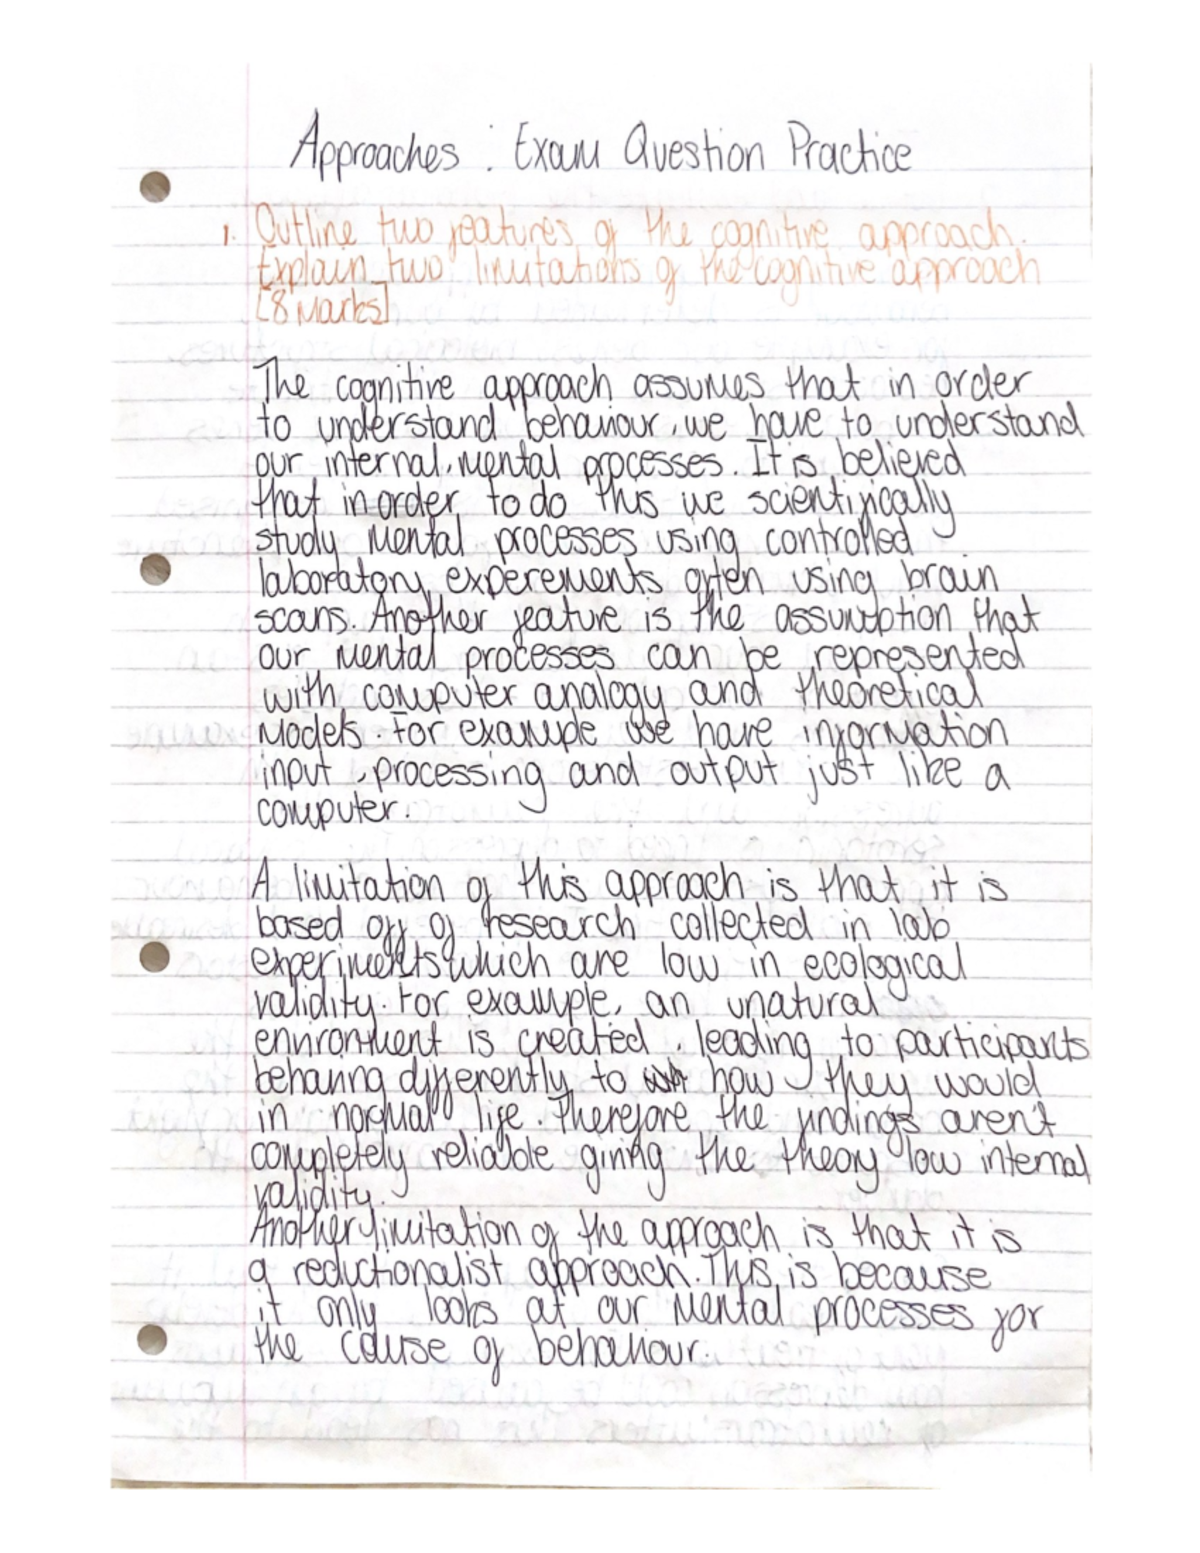 Approaches : Exam Question Practice
1. Outline two features of the cognitive approach.
Explain two limitations of the cognitive approach
[8 Marks]
The cognitive approach assumes that in order
to understand behaviour, we have to understand
our internal, mental processes. It is believed
that in order to do this we scientifically
study mental processes using controlled
laboratory experements often using brain
scans. Another feature is the assumption that
our mental processes can be represented
with computer analogy and theoretical
Models. For example we have information
input, processing and output just like a
computer.
A limitation of this approach is that it is
based off of research collected in lab
experiments which are low in ecological
validity. For example, an unatural
environment is created, leading to participants
behaving differently to how they would
in normal life. Therefore the findings aren't
completely reliable giving the theory low internal
validity.
Another limitation of the approach is that it is
a reductionalist approach. This is because
it only looks at our mental processes for
the cause of behaviour.